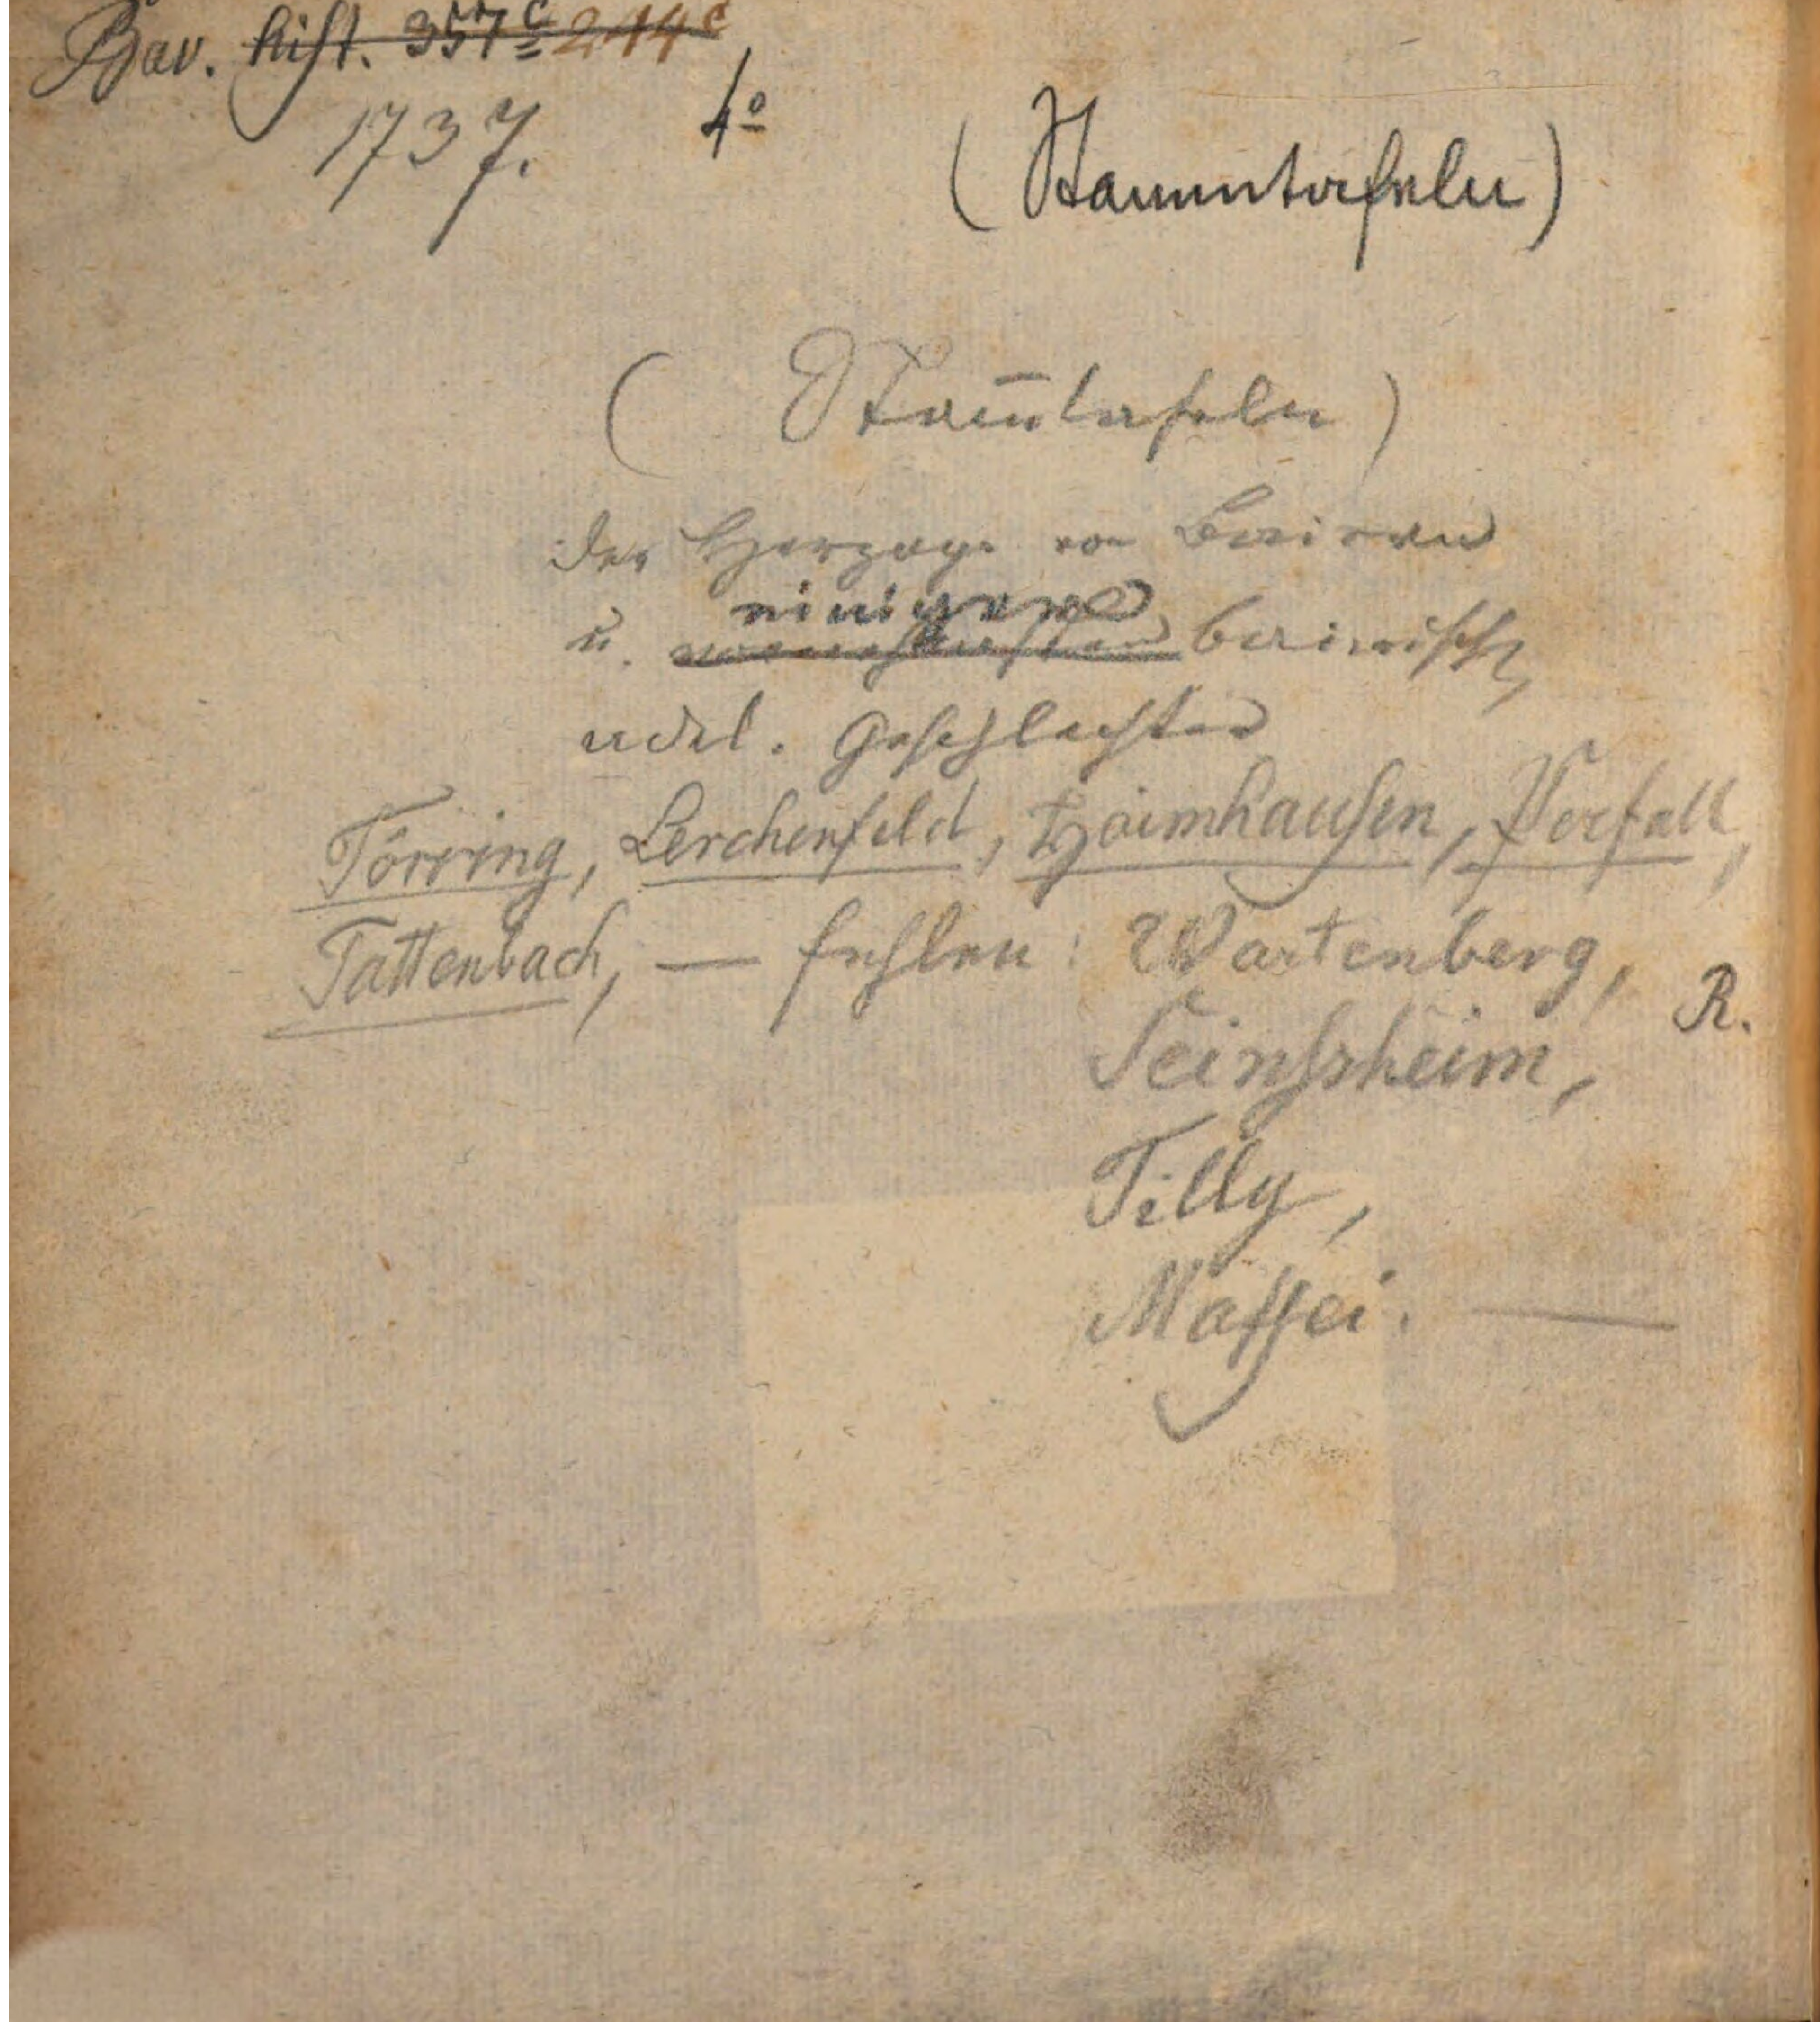 Bav. hist. 357c 244c
1737. 4o
(Stammtafeln)
(Stam̄tafeln)
der Herzoge von Baiern
einiger
u. bairisch.
adel. Geschlechter
Törring, Lerchenfeld, Haimhausen, Perfall,
Tattenbach, — fehlen: Wartenberg,
R.
Seinsheim,
Tilly,
Maffei. —